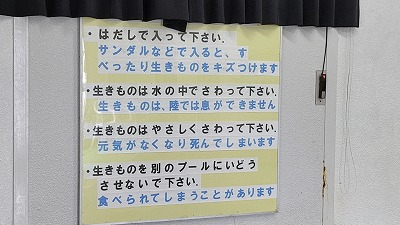 ・はだしで入って下さい.
サンダルなどで入ると、す
べったり生きものをキズつけます
・生きものは 水の中でさわって下さい.
生きものは、陸では息ができません
・生きものは やさしくさわって下さい.
元気がなくなり死んでしまいます
・生きものを 別のプールにいどう
させないで下さい.
食べられてしまうことがあります